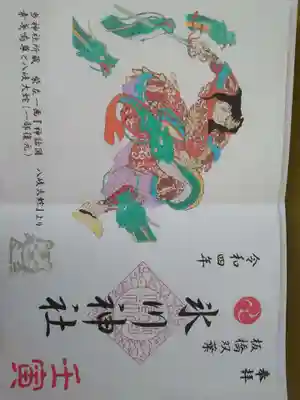 奉拝
板橋双葉
氷川神社
令和四年
壬寅
当神社所蔵 一画『神話図 八岐大蛇』より
素戔嗚尊と八岐大蛇(一部復元)